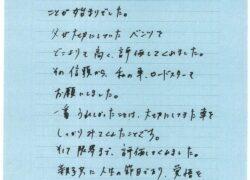 ことが始まりでした。
父が大切にしていたベンツで
どこよりも高く、評価してくれました。
その信頼から、私の車、ロードスターを
お願いしました。
一番うれしかったことは、大切にしてきた車を
しっかりみてくれたことです。
そして限界まで、評価してくれました。
人生の節目であり、覚悟を